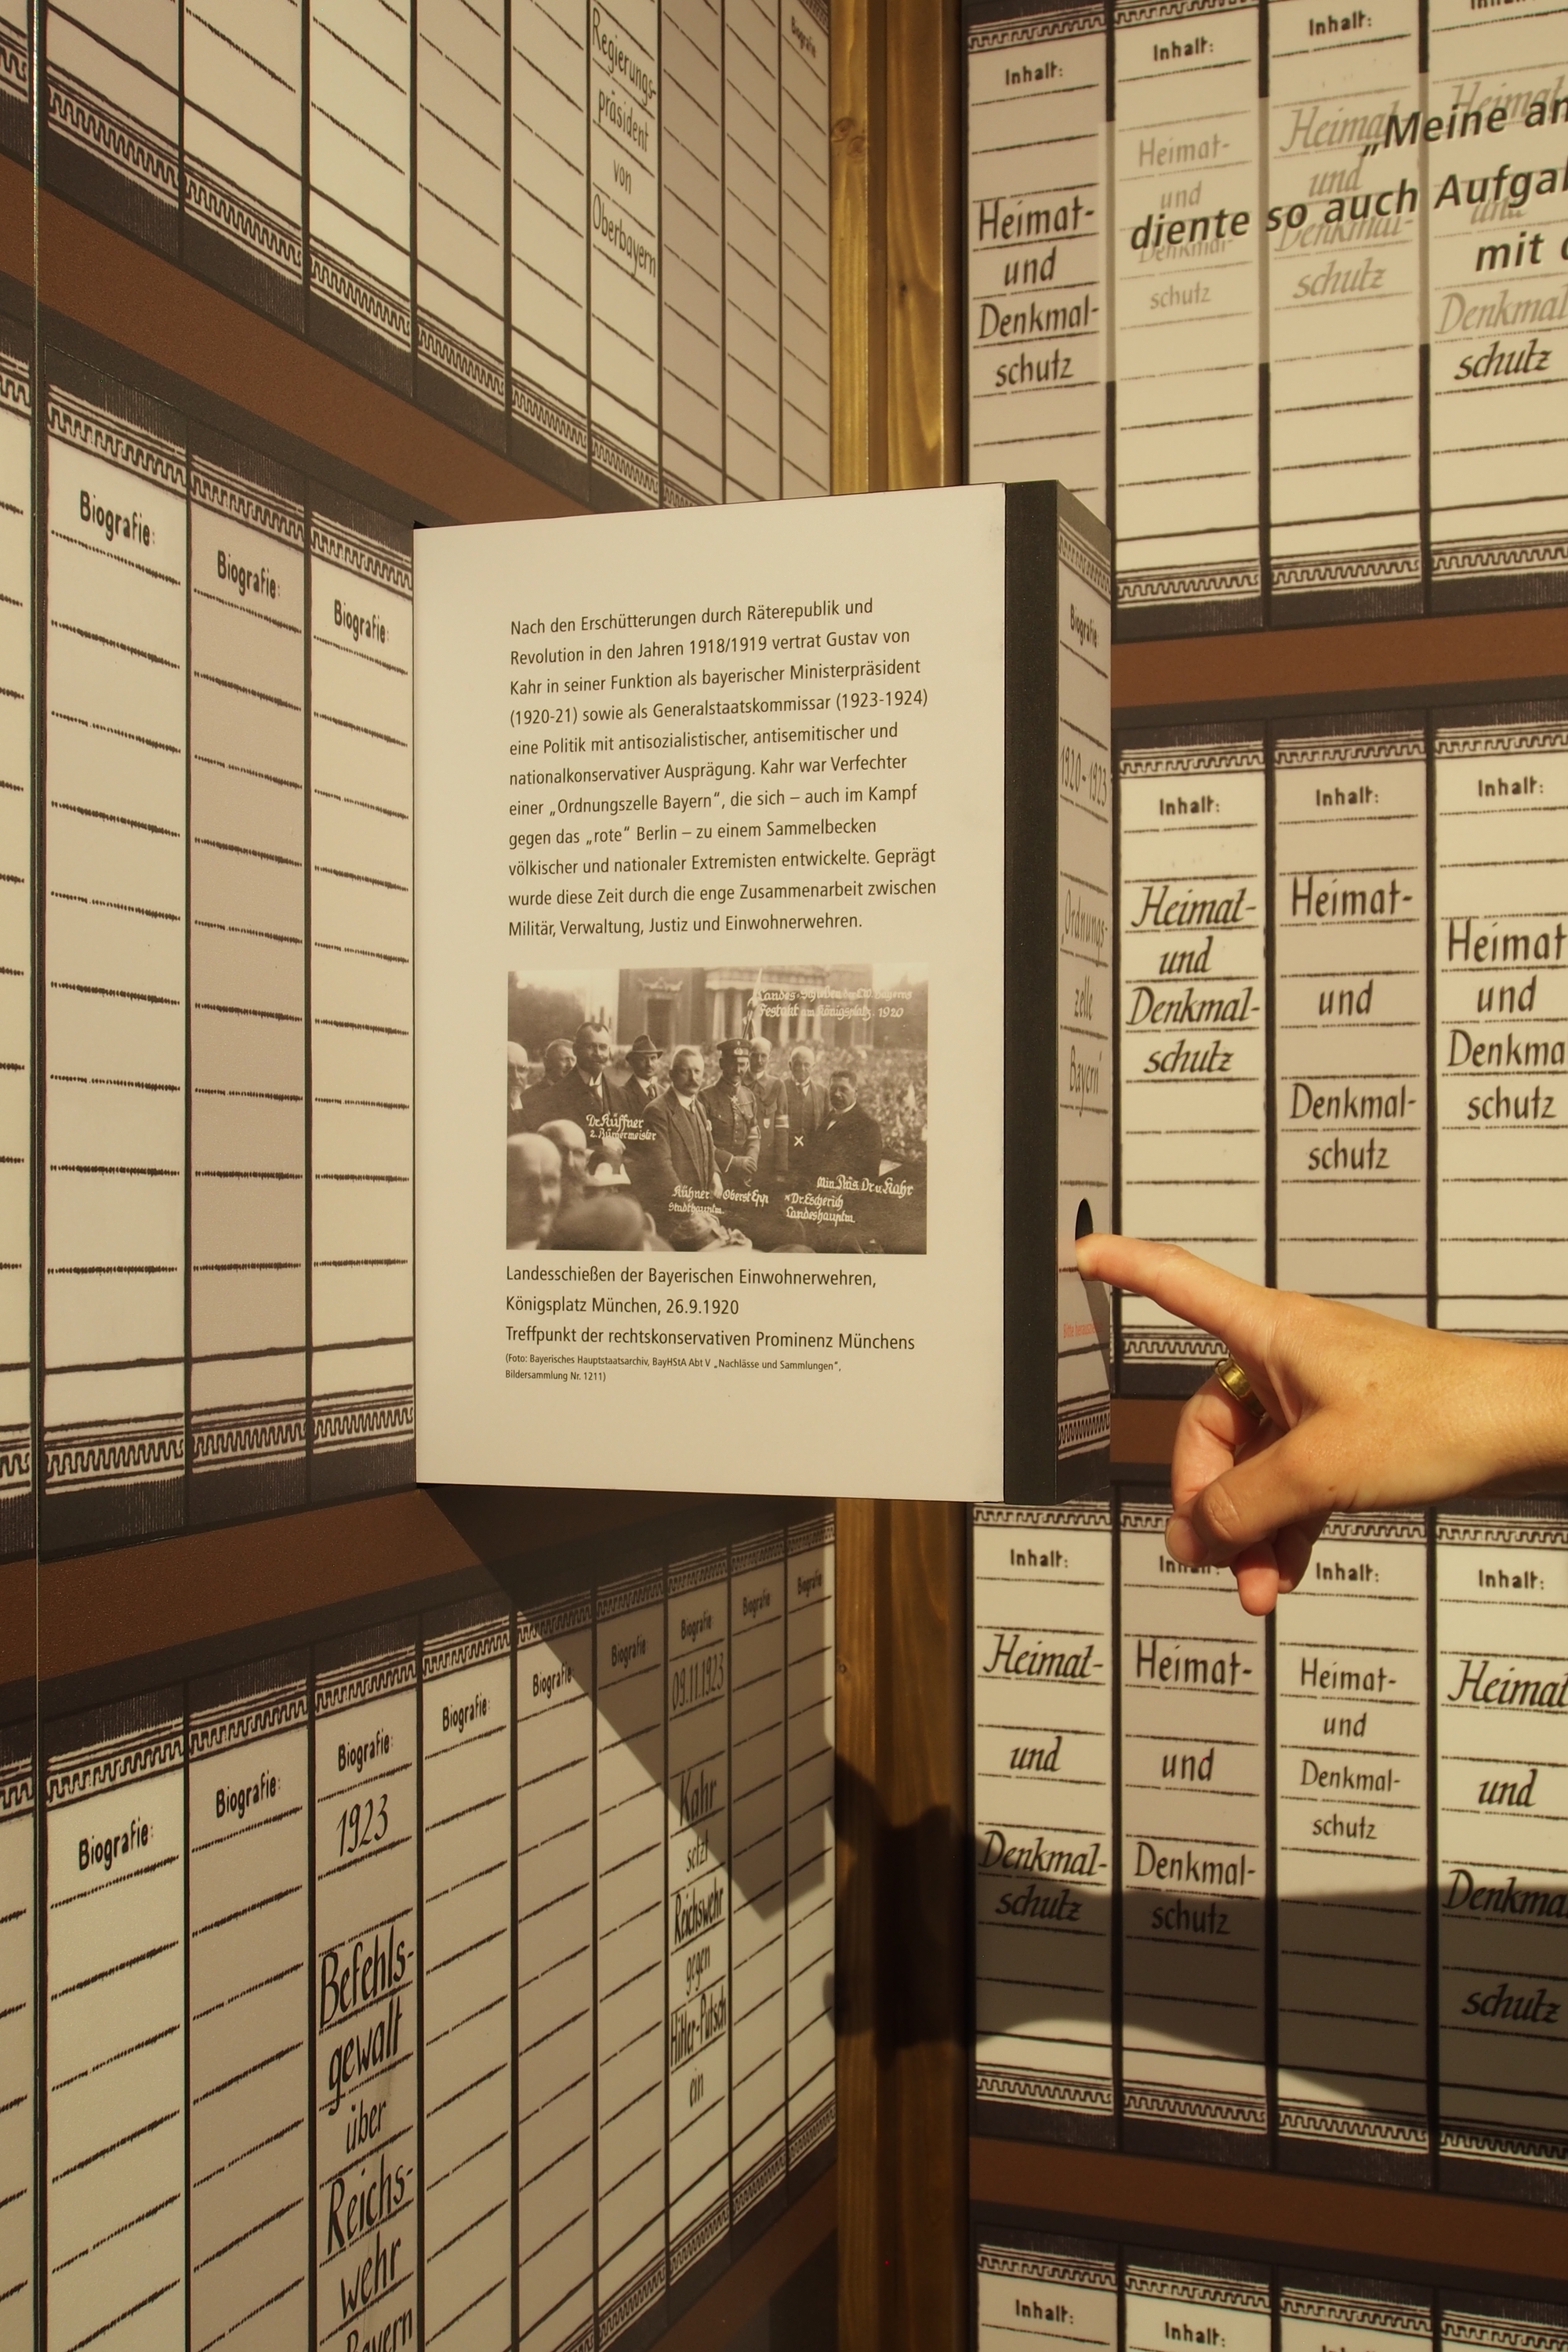 Biografie:
Regierungs-
präsident
von
Oberbayern
Inhalt:
Heimat-
und
Denkmal-
schutz
Inhalt:
Heimat-
und
Denkmal-
schutz
Inhalt:
Heimat-
und
Denkmal-
schutz
Heimat-
und
Denkmal-
schutz
„Meine an
diente so auch Aufgab
mit
Biografie:
Biografie:
Biografie:
Nach den Erschütterungen durch Räterepublik und
Revolution in den Jahren 1918/1919 vertrat Gustav von
Kahr in seiner Funktion als bayerischer Ministerpräsident
(1920-21) sowie als Generalstaatskommissar (1923-1924)
eine Politik mit antisozialistischer, antisemitischer und
nationalkonservativer Ausprägung. Kahr war Verfechter
einer „Ordnungszelle Bayern“, die sich – auch im Kampf
gegen das „rote“ Berlin – zu einem Sammelbecken
völkischer und nationaler Extremisten entwickelte. Geprägt
wurde diese Zeit durch die enge Zusammenarbeit zwischen
Militär, Verwaltung, Justiz und Einwohnerwehren.
Festakt am Königsplatz. 1920
Dr. Küffner
2. Bürgermeister
Kühner
Stadthauptm.
Oberst Epp
Dr. Escherich
Landeshauptm.
Min. Präs. Dr. v. Kahr
Landesschießen der Bayerischen Einwohnerwehren,
Königsplatz München, 26.9.1920
Treffpunkt der rechtskonservativen Prominenz Münchens
(Foto: Bayerisches Hauptstaatsarchiv, BayHStA Abt V „Nachlässe und Sammlungen“,
Bildersammlung Nr. 1211)
Biografie
1920-1923
„Ordnungs-
zelle
Bayern“
Bitte
Inhalt:
Heimat-
und
Denkmal-
schutz
Inhalt:
Heimat-
und
Denkmal-
schutz
Inhalt:
Heimat
und
Denkma
schutz
Biografie:
Biografie:
Biografie:
1923
Befehls-
gewalt
über
Reichs-
wehr
Bayern
Biografie:
Biografie:
Biografie
Biografie:
09.11.1923
Kahr
setzt
Reichswehr
gegen
Hitler-Putsch
ein
Biografie
Biografie
Inhalt:
Heimat-
und
Denkmal-
schutz
Inhalt:
Heimat-
und
Denkmal-
schutz
Inhalt:
Heimat-
und
Denkmal-
schutz
Inhalt:
Heimat
und
Denkma
schutz
Inhalt:
Inhalt: